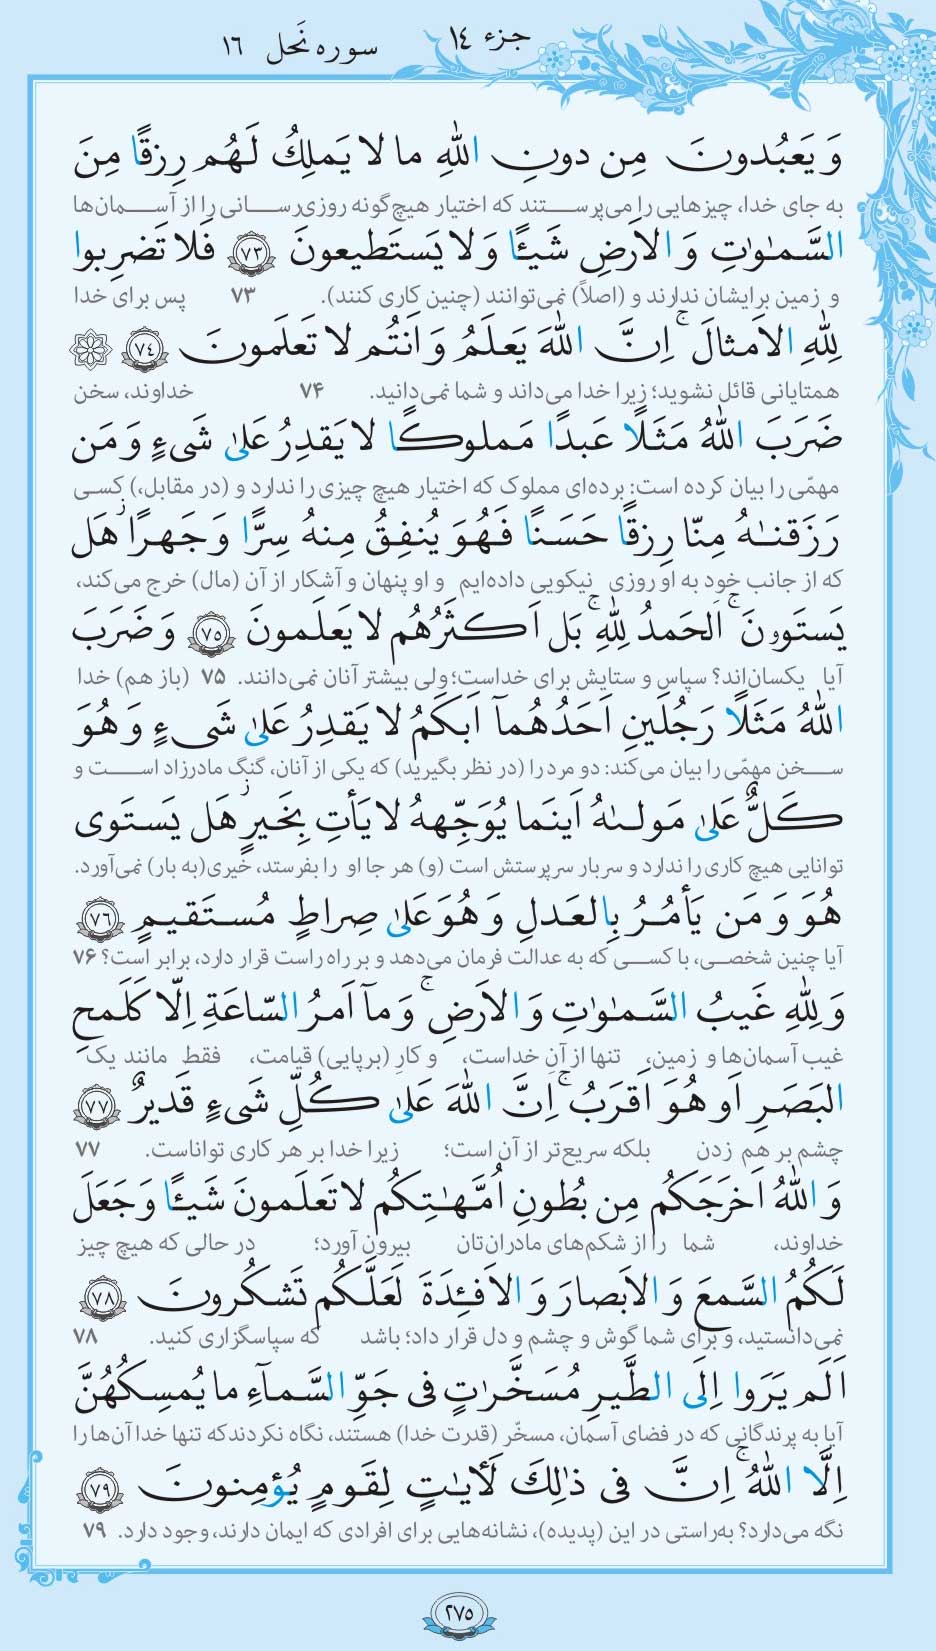 جزء ۱۴
سوره نَحل ۱۶
وَ يَعبُدونَ مِن دونِ اللّٰهِ ما لا يَملِكُ لَهُم رِزقًا مِنَ
به جای خدا، چیزهایی را می‌پرستند که اختیار هیچ‌گونه روزی‌رسانی را از آسمان‌ها
السَّمٰوٰتِ وَ الاَرضِ شَيـًٔا وَ لا يَستَطيعونَ ﴿۷۳﴾ فَلا تَضرِبوا
و زمین برایشان ندارند و (اصلاً) نمی‌توانند (چنین کاری کنند). ۷۳ پس برای خدا
لِلّٰهِ الاَمثالَ ۚ اِنَّ اللّٰهَ يَعلَمُ وَ اَنتُم لا تَعلَمونَ ﴿۷۴﴾ ۞
همتایانی قائل نشوید؛ زیرا خدا می‌داند و شما نمی‌دانید. ۷۴ خداوند، سخن
ضَرَبَ اللّٰهُ مَثَلًا عَبدًا مَملوكًا لا يَقدِرُ عَلىٰ شَیءٍ وَ مَن
مهمّی را بیان کرده است: برده‌ای مملوک که اختیار هیچ چیزی را ندارد و (در مقابل،) کسی
رَزَقنٰهُ مِنّا رِزقًا حَسَنًا فَهُوَ يُنفِقُ مِنهُ سِرًّا وَ جَهرًا ۖ هَل
که از جانب خود به او روزی نیکویی داده‌ایم و او پنهان و آشکار از آن (مال) خرج می‌کند،
يَستَوۥنَ ۚ اَلحَمدُ لِلّٰهِ ۚ بَل اَكثَرُهُم لا يَعلَمونَ ﴿۷۵﴾ وَ ضَرَبَ
آیا یکسان‌اند؟ سپاس و ستایش برای خداست؛ ولی بیشتر آنان نمی‌دانند. ۷۵ (باز هم) خدا
اللّٰهُ مَثَلًا رَجُلَينِ اَحَدُهُمآ اَبكَمُ لا يَقدِرُ عَلىٰ شَیءٍ وَ هُوَ
سخن مهمّی را بیان می‌کند: دو مرد را (در نظر بگیرید) که یکی از آنان، گنگ مادرزاد است و
كَلٌّ عَلىٰ مَولىٰهُ اَينَما يُوَجِّههُ لا يَأتِ بِخَيرٍ ۖ هَل يَستَوی
توانایی هیچ کاری را ندارد و سربار سرپرستش است (و) هر جا او را بفرستد، خیری(به بار) نمی‌آورد.
هُوَ وَ مَن يَأمُرُ بِالعَدلِ وَ هُوَ عَلىٰ صِراطٍ مُستَقيمٍ ﴿۷۶﴾
آیا چنین شخصی، با کسی که به عدالت فرمان می‌دهد و بر راه راست قرار دارد، برابر است؟ ۷۶
وَ لِلّٰهِ غَيبُ السَّمٰوٰتِ وَ الاَرضِ ۚ وَ مآ اَمرُ السّاعَةِ اِلّا كَلَمحِ
غیب آسمان‌ها و زمین، تنها از آنِ خداست، و کارِ (برپایی) قیامت، فقط مانند یک
البَصَرِ اَو هُوَ اَقرَبُ ۚ اِنَّ اللّٰهَ عَلىٰ كُلِّ شَیءٍ قَديرٌ ﴿۷۷﴾
چشم بر هم زدن بلکه سریع‌تر از آن است؛ زیرا خدا بر هر کاری تواناست. ۷۷
وَ اللّٰهُ اَخرَجَكُم مِن بُطونِ اُمَّهٰتِكُم لا تَعلَمونَ شَيـًٔا وَ جَعَلَ
خداوند، شما را از شکم‌های مادران‌تان بیرون آورد؛ در حالی که هیچ چیز
لَكُمُ السَّمعَ وَ الاَبصارَ وَ الاَفـِٔدَةَ لَعَلَّكُم تَشكُرونَ ﴿۷۸﴾
نمی‌دانستید، و برای شما گوش و چشم و دل قرار داد؛ باشد که سپاسگزاری کنید. ۷۸
اَلَم يَرَوا اِلَی الطَّيرِ مُسَخَّرٰتٍ فی جَوِّ السَّمآءِ ما يُمسِكُهُنَّ
آیا به پرندگانی که در فضای آسمان، مسخّر (قدرت خدا) هستند، نگاه نکردندکه تنها خدا آن‌ها را
اِلَّا اللّٰهُ ۚ اِنَّ فی ذٰلِكَ لَأٰيٰتٍ لِقَومٍ يُؤمِنونَ ﴿۷۹﴾
نگه می‌دارد؟ به‌راستی در این (پدیده)، نشانه‌هایی برای افرادی که ایمان دارند، وجود دارد. ۷۹
۲۷۵